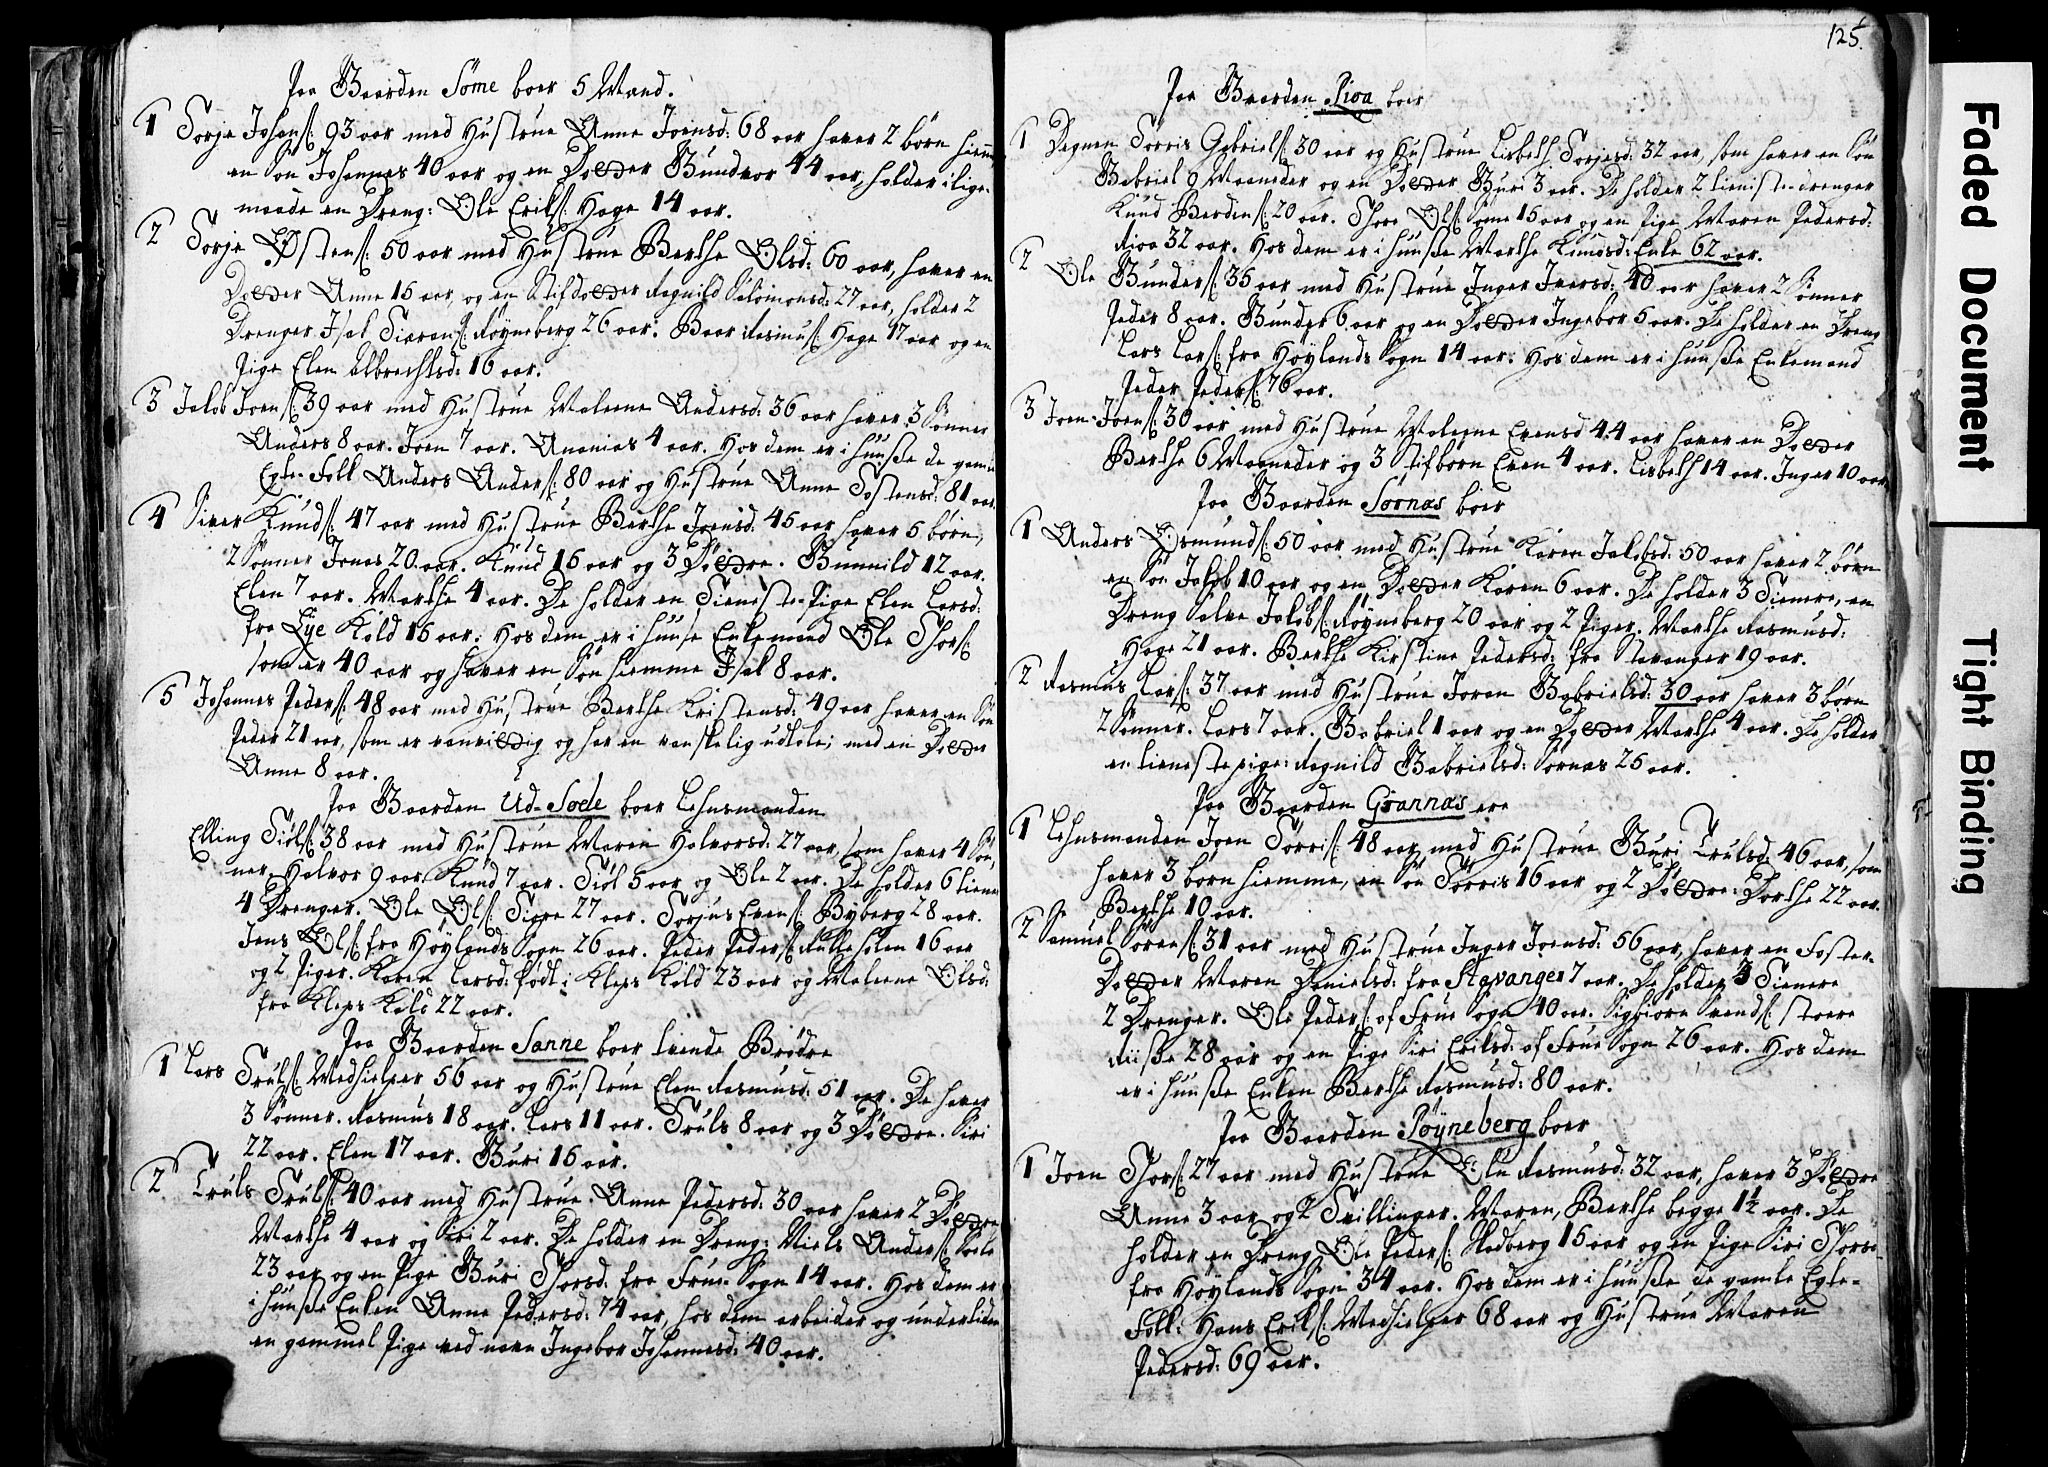 Paa Gaarden Sôme boer 5 Mænd.
1 Torje Johans: 93 aar med Hustrue Anne Joensd: 68 aar haver 2 børn hiem̃e
en Søn Johannes 40 aar og en Dotter Gundvor 44 aar, holder i lige-
maade en Dreng: Ole Eriks: Hage 14 aar.
2 Torje Østens: 50 aar med Hustrue Berthe Olsd: 60 aar, haver en
Dotter Anne 15 aar, og en Stifdotter Ragnild Salomonsd: 27 aar, holder 2
Drenger Isak Siørens: Røyneberg 26 aar. Baar Rasmus: Hage 17 aar og en
Pige Elen Albrechtsd: 16 aar.
3 Jakob Joens: 39 aar med Hustrue Malene Andersd: 36 aar haver 3 Sønner
Anders 8 aar. Joen 7 aar. Ananias 4 aar. Hos dem er i huuse de gamle
Egte-Folk Anders Anders: 80 aar og Hustrue Anne Tostensd: 81 aar.
4 Siver Knuds: 47 aar med Hustrue Berthe Joensd: 45 aar haver 5 børn,
2 Sønner Jonas 20 aar. Knud 16 aar og 3 Døttre. Gunnild 12 aar.
Elen 7 aar. Marthe 4 aar. De holder en Tieniste-Pige Elen Larsd:
fra Lye Kald 15 aar. Hos dem er i huuse Enkemand Ole Thors:
som er 40 aar og haver en Søn hiemme Isak 8 aar.
5 Johannes Peders: 48 aar med Hustrue Berthe Kristensd: 49 aar haver en Søn
Peder 21 aar, som er vanvittig og har en vanskelig udtale; med en Dotter
Anne 8 aar.
Paa Gaarden Ud-Sôle boer Lehnsmanden
Elling Tiøls: 38 aar med Hustrue Maren Halvorsd: 27 aar, som haver 4 Søn-
ner, Halvor 9 aar Knud 7 aar. Tiøl 5 aar og Ole 2 aar. De holder 6 tienere
4 Drenger. Ole Ols: Tiore 27 aar. Torjus Evens: Byberg 28 aar.
Jens Ols: fra Høylands Sogn 26 aar. Peder Peders: 16 aar
og 2 Piger. Karen Larsd: født i Kleps Kald 23 aar og Malene Olsd:
fra Kleps Kald 22 aar.
Paa Gaarden Sanne boer tvende Brødre
1 Lars Truls: Medhielper 56 aar og Hustrue Elen Rasmusd: 51 aar. De haver
3 Sønner. Rasmus 18 aar. Lars 11 aar. Truls 8 aar og 3 Døttre. Siri
22 aar. Elen 17 aar. Guri 16 aar.
2 Truls Truls: 40 aar med Hustrue Anne Pedersd: 30 aar haver 2 Døttre
Marthe 4 aar og Siri 2 aar. De holder en Dreng: Niels Anders: Sôle
23 aar og en Pige Guri Thorsd. fra Frue Sogn 14 aar. Hos dem er
i huuse Enken Anne Pedersd: 74 aar, hos dem arbeider og undertiden
en gammel Pige ved navn Ingebor Johannesd: 40 aar.
125.
Paa Gaarden Rioa boer
1 Degnen Torris Gabriels: 30 aar og Hustrue Lisbeth Torjesd: 32 aar, som haver en Søn
Gabriel 9 Maaneder og en Dotter Guri 3 aar. De holder 2 tieniste-drenger
Knud Bardens: 20 aar. Thore Ols: Sôme 15 aar og en Pige Maren Pedersd:
Rioa 32 aar. Hos dem er i huuse Marthe Knudsd: Enke 62 aar.
2 Ole Gunders: 35 aar med Hustrue Inger Iversd: 40 aar haver 2 Sønner
Peder 8 aar. Gunder 6 aar og en Dotter Ingebor 5 aar. De holder en Dreng
Lars Lars: fra Høylands Sogn 14 aar. Hos dem er i huuse Enkemand
Peder Peders: 76 aar.
3 Joen Joens: 30 aar med Hustrue Malene Evensd 44 aar haver en Dotter
Berthe 6 Maaneder og 3 Stifbørn Even 4 aar. Lisbeth 14 aar. Inger 10 aar.
Paa Gaarden Sørnæs boer
1 Anders Osmunds: 50 aar med Hustrue Karen Jakobsd: 50 aar haver 2 børn
en Søn Jakob 10 aar og en Dotter Karen 6 aar. De holder 3 Tienere, en
Dreng Salve Jakobs: Røyneberg 20 aar og 2 Piger. Marthe Rasmusd:
Hage 21 aar. Berthe Kirstine Pedersd: fra Stavanger 19 aar.
2 Rasmus Lars: 37 aar med Hustrue Joran Gabrielsd: 30 aar haver 3 børn
2 Sønner. Lars 7 aar. Gabriel 1 aar og en Dotter Marthe 4 aar. De holder
en tienestepige: Ragnild Gabrielsd: Sørnæs 25 aar.
Paa Gaarden Grannæs ere
1 Lehnsmanden Joen Torris: 48 aar med Hustrue Guri Trulsd: 46 aar, som
haver 3 børn hiemme, en Søn Torris 16 aar og 2 Døttre: Dorthe 22 aar.
Berthe 10 aar.
2 Samuel Sørens: 31 aar med Hustrue Inger Joensd: 56 aar, haver en Foster-
Dotter Maren Danielsd: fra Stavanger 7 aar. De holder 3 Tienere
2 Drenger. Ole Peders: af Frue Sogn 40 aar. Sigbiørn Svends: store
Riisse 28 aar og en Pige Siri Eriksd: af Frue Sogn 26 aar. Hos dem
er i huuse Enken Berthe Rasmusd: 80 aar.
Paa Gaarden Røyneberg boer
1 Joen Thors: 27 aar med Hustrue Eli Rasmusd: 32 aar, haver 3 Døttre
Anne 3 aar og 2 Tvillinger. Maren, Berthe begge 1½ aar. De
holder en Dreng Ole Peders: Hodberg 15 aar og en Pige Siri Thorsd-
fra Høylands Sogn 34 aar. Hos dem er i huuse de gamle Egte-
Folk: Hans Eriks: Medhielper 68 aar og Hustrue Maren
Pedersd: 69 aar.
Faded Document
Tight Binding